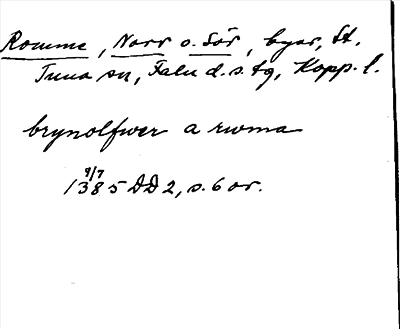 Romme, Norr o. Sör, byar, St.
Tuna sn, Falu d. s. tg, Kopp. l.
brynolfwer a rwma
9/7
1385 DD 2, s. 6 or.